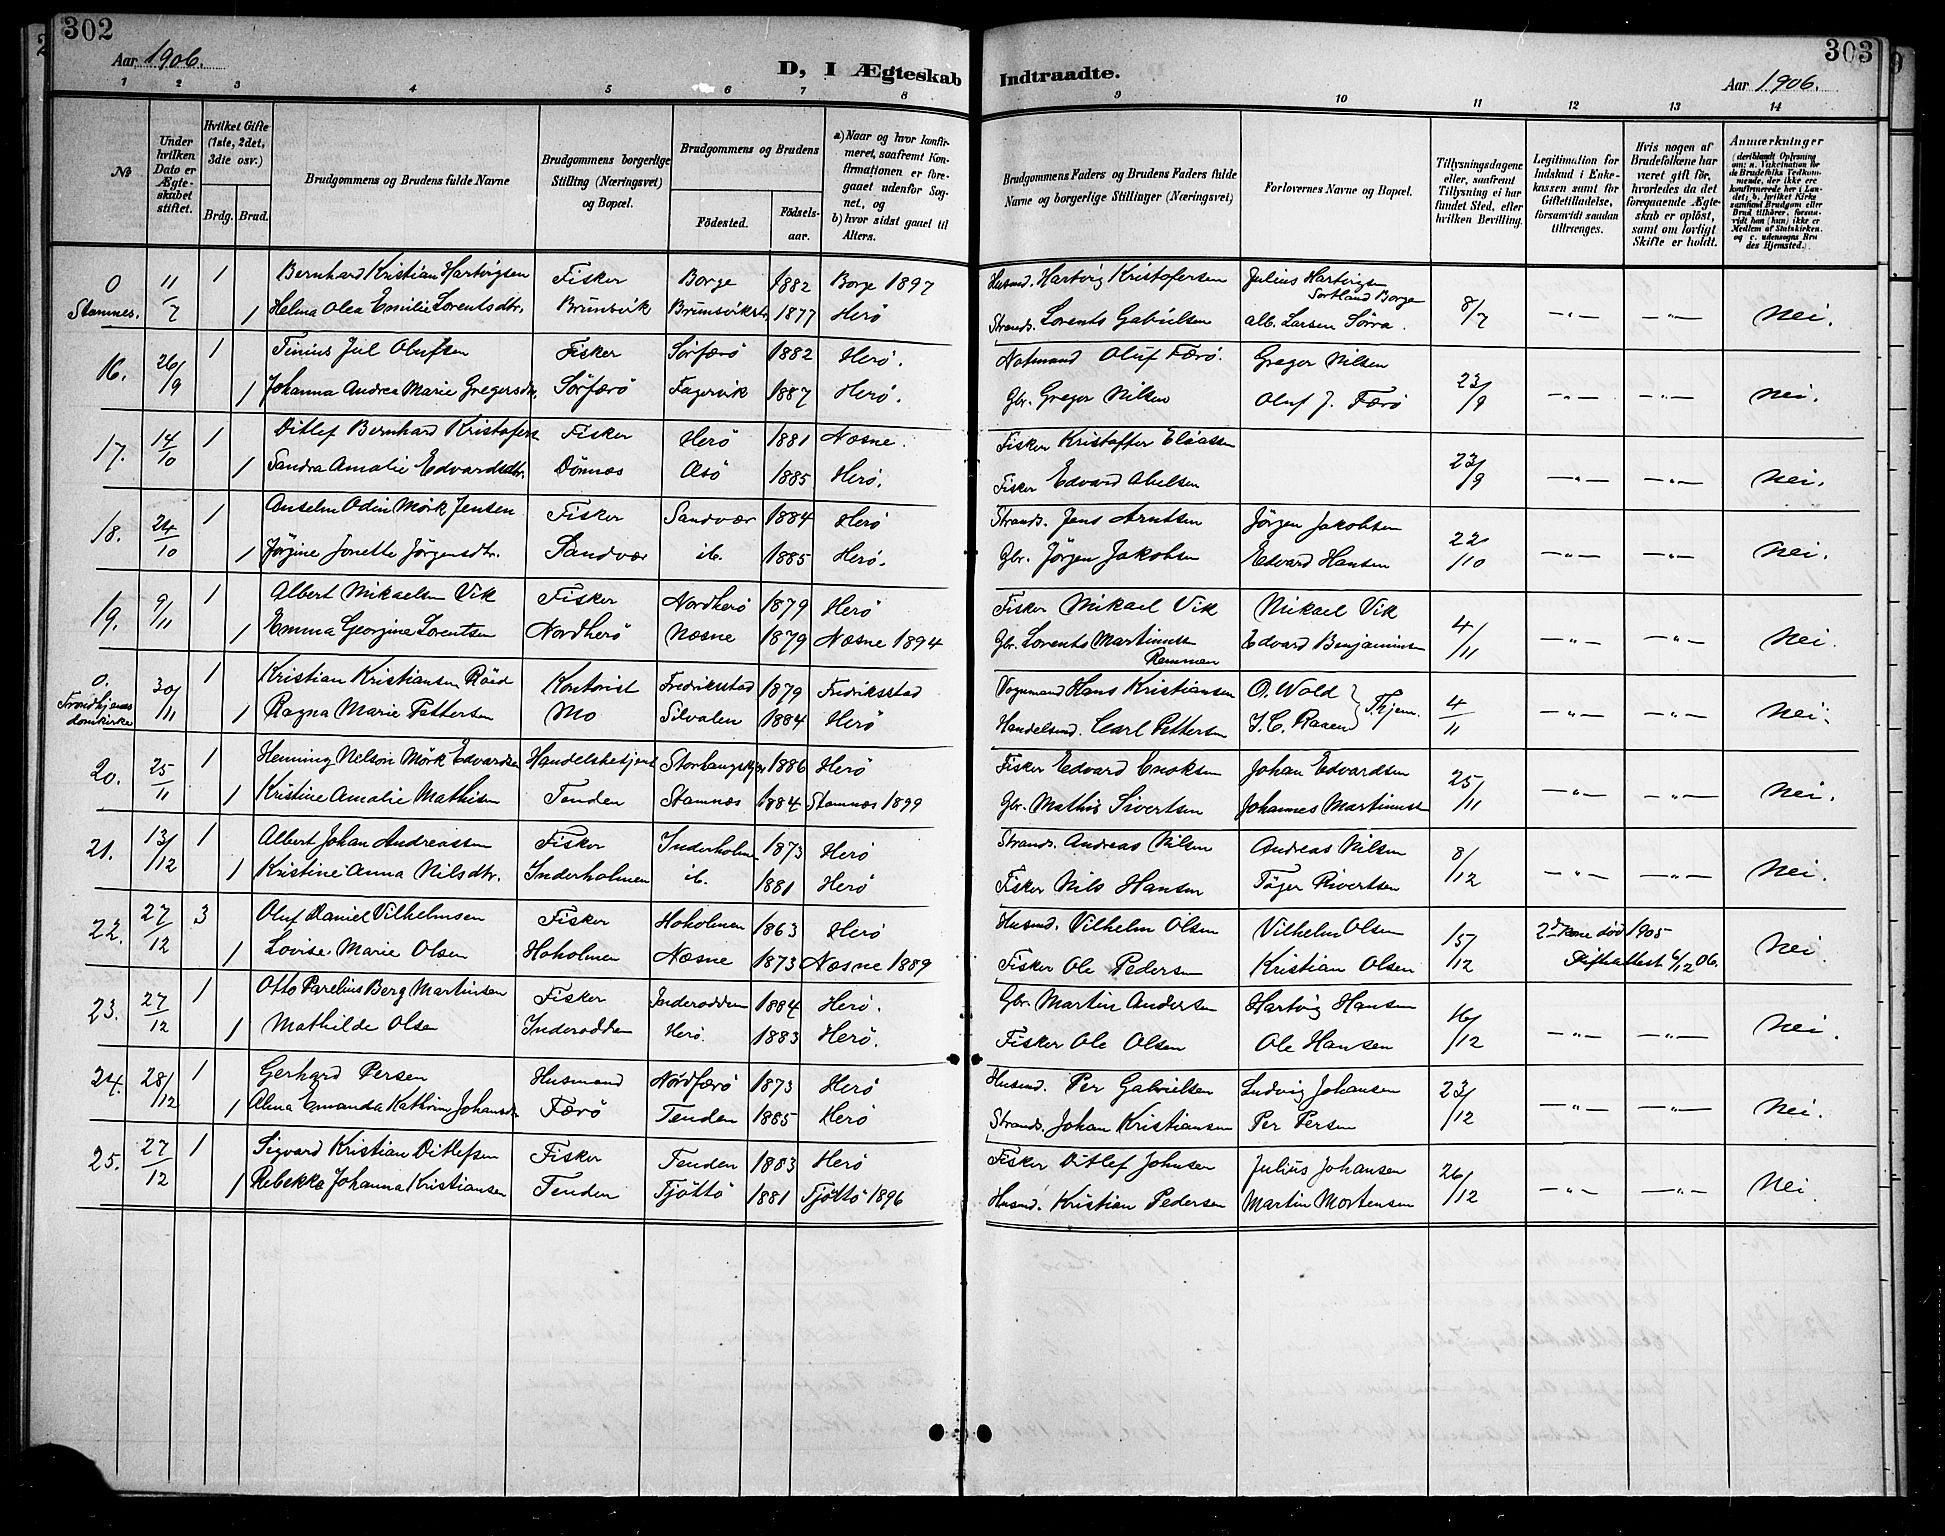 302
Aar 1906.
D, I Ægteskab
1 2 3 4 5 6 7 8
No
Under hvilken Dato er Ægteskabet stiftet.
Hvilket Gifte (1ste, 2det, 3die osv.)
Brdg. Brud.
Brudgommens og Brudens fulde Navne
Brudgommens borgerlige Stilling (Næringsvei) og Bopæl.
Brudgommens og Brudens
Fødested.
Fødselsaar.
a) Naar og hvor konfirmeret, saafremt Konfirmationen er foregaaet udenfor Sognet, og
b) hvor sidst gaaet til Alters.
0 11/7 1 Bernhard Kristian Hartvigsen Fisker Borge 1882 Borge 1897
Stamnes. 1 Helma Olea Emilie Lorentsdtr. Brunsvik 1877 Herö
16. 26/9 1 Tinius Jul Olufsen Fisker Sörfærö 1882 Herö.
1 Johanna Andrea Marie Gregersdtr. Sörfærö Fagervik 1887 Herö.
17. 14/10 1 Ditlef Bernhard Kristofers Fisker Herö 1881 Næsne.
1 Sandra Amalie Edvardsdtr. Dönnæs 1885 Herö.
18. 24/10 1 Anselm Odin Mörk Jensen Fisker Sandvær 1884 Herö
1 Jörgine Jonette Jörgensdtr. Sandvær ib. 1885 Herö.
19. 9/11 1 Albert Mikaelsen Vik Fisker Nordherö 1879 Herö
1 Emma Georgine Lorentsen Nordherö Næsne 1879 Næsne 1894
0. Trondhjems domkirke 30/11 1 Kristian Kristiansen Röed Kontorist Fredriksstad 1879 Fredriksstad
1 Ragna Marie Pettersen Mo Silvalen 1884 Herö
20. 25/11 1 Henning Nelson Mörk Edvardsen Handelsbetjent 1886 Herö
1 Kristine Amalie Mathisen Tenden Stamnæs 1884 Stamnæs 1899
21. 13/12 1 Albert Johan Andreassen Fisker Inderholmen 1873 Herö
1 Kristine Anna Nilsdtr. Inderholmen ib. 1881 Herö
22. 27/12 3 Oluf Daniel Vilhelmsen Fisker Hoholmen 1863 Herö
1 Lovise Marie Olsen Hoholmen Næsne 1873 Næsne 1889
23. 27/12 1 Otto Parelius Berg Martinsen Fisker Inderodden 1884 Herö.
1 Mathilde Olsen Inderodden Herö. 1883 Herö.
24. 28/12 1 Gerhard Persen Husmand Nordfærö 1873 Herö
1 Alma Emanda Kathrine Johansdtr Færö Tenden 1885 Herö
25. 27/12 1 Sigvard Kristian Ditlefsen Fisker Tenden 1883 Herö
1 Rebekka Johanna Kristiansen Tenden Tjöttö 1881 Tjöttö 1896
303
Indtraadte.
Aar 1906.
9 10 11 12 13 14
Brudgommens Faders og Brudens Faders fulde Navne og borgerlige Stillinger (Næringsvei)
Forlovernes Navne og Bopæl.
Tillysningsdagene eller, saafremt Tillysning ei har fundet Sted, efter hvilken Bevilling.
Legitimation for Indskud i Enkekassen samt for Giftetilladelse, forsaavidt saadan tiltrænges.
Hvis nogen af Brudefolkene har været gift før, hvorledes da det foregaaende Ægteskab er opløst, samt om lovligt Skifte er holdt.
Anmærkninger
(deriblandt Oplysning om: a. Vakcination for de Brudefolks Vedkommende, der ikke ere konfirmerede her i Landet; b. hvilket Kirkesamfund Brudgom eller Brud tilhører, forsaavidt han (hun) ikke er Medlem af Statskirken og c. udensogns Brudes Hjemsted.)
Husmd. Hartvig Kristofersen Julius Hartvigsen
Sortland Borge
Strands. Lorents Gabrielsen Alb. Larsen Sörra. 8/7 —„— —„— Nei.
Notmand Oluf Færö. Gregor Nilsen
Gbr. Gregor Nilsen Oluf J. Færö 23/9 —„— —„— Nei.
Fisker Kristoffer Eliassen
Fisker Edvard Abelsen 23/9 —„— —„— Nei.
Strands. Jens Arntsen Jörgen Jakobsen
Gbr. Jörgen Jakobsen Edvard Hansen 22/10 —„— —„— Nei.
Fisker Mikael Vik Mikael Vik
Gbr. Lorents Martinusen Edvard Benjaminsen 4/11 —„— —„— Nei.
Remmen
Vognmand Hans Kristiansen O. Wold
Handelsmd. Carl Pettersen J. C. Raaen } Thjem. 4/11 —„— —„— Nei.
Fisker Edvard Enoksen Johan Edvardsen
Gbr. Mathis Sivertsen Johannes Martinussen 25/11 —„— —„— Nei.
Strands. Andreas Nilsen Andreas Nilsen
Fisker Nils Hansen 8/12 —„— —„— Nei.
Husmd. Vilhelm Olsen Vilhelm Olsen 2d Kone död 1905
Fisker Ole Pedersen Kristian Olsen 15/12 Skifteattest 6/12 06. Nei.
Gbr. Martin Andersen Hartvig Hansen
Fisker Ole Olsen Ole Hansen 16/12 —„— —„— Nei.
Husmd. Per Gabrielsen Ludvig Johansen
Strands. Johan Kristiansen Per Persen 23/12 —„— —„— Nei.
Fisker Ditlef Johnsen Julius Johansen
Husmd. Kristian Pedersen Martin Mortensen 26/12 —„— —„— Nei.